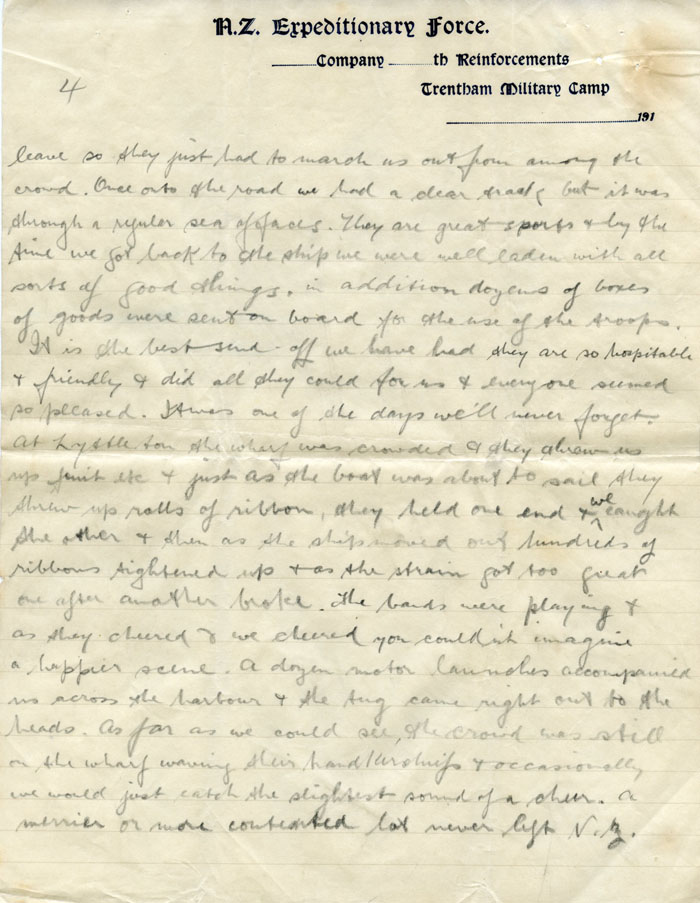 N.Z. Expeditionary Force.
Company th Reinforcements
Trentham Military Camp
191
4
leave so they just had to march us out from among the
crowd. Once onto the road we had a clear track but it was
through a regular sea of faces. They are great sports & by the
time we got back to the ship we were well laden with all
sorts of good things, in addition dozens of boxes
of goods were sent on board for the use of the troops.
It is the best send-off we have had they are so hospitable
& friendly & did all they could for us & everyone seemed
so pleased. It was one of the days we'll never forget.
At Lyttleton the wharf was crowded & they threw us
up fruit etc & just as the boat was about to sail they
threw up rolls of ribbon, they held one end & we caught
the other & then as the ship moved out hundreds of
ribbons tightened up & as the strain got too great
one after another broke. The bands were playing &
as they cheered & we cheered you couldn't imagine
a happier scene. A dozen motor launches accompanied
us across the harbour & the tug came right out to the
heads. As far as we could see, the crowd was still
on the wharf waving their handkerchiefs & occasionally
we would just catch the slightest sound of a cheer. A
merrier or more contented lot never left N.Z.